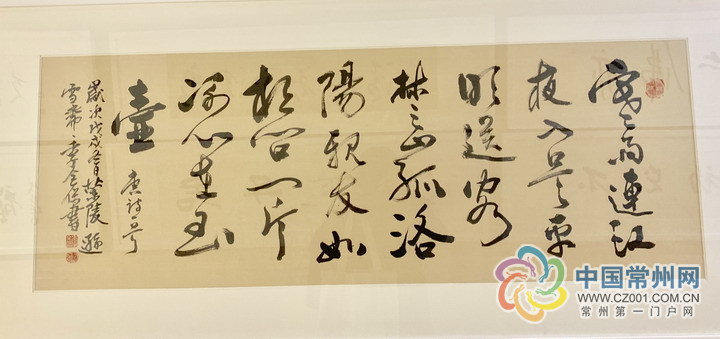 寒雨連江
夜入吳平
明送客
楚山孤洛
陽親友如
相問一片
冰心在玉
壺
唐詩一首
歲次戊戌冬月蘭陵
雪齋書
中国常州网
WWW.CZ001.COM.CN
常州第一门户网